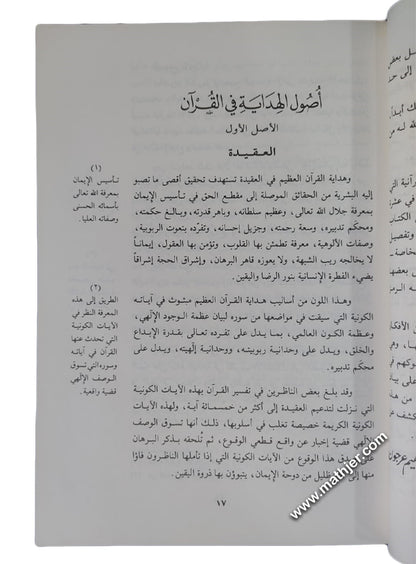 أصول الهداية في القرآن
الأصل الأول
العقيدة
(١)
تأسيس الإيمان
بمعرفة الله تعالى
بأسمائه الحسنى
وصفاته العليا.
وهداية القرآن العظيم في العقيدة تستهدف تحقيق أقصى ما تصبو
إليه البشرية من الحقائق الموصلة إلى مقطع الحق في تأسيس الإيمان
بمعرفة جلال الله تعالى، وعظيم سلطانه، وباهر قدرته، وبالغ حكمته،
ومحكم تدبيره، وسعة رحمته، وجزيل إحسانه، وتفرّده بنعوت الربوبية،
وصفات الألوهية، معرفة تطمئن بها القلوب، وتؤمن بها العقول، إيماناً
لا يخالجه ريب الشبهة، ولا يعوزه قاهر البرهان، وإشراق الحجة إشراقاً
يضيء الفطرة الإنسانية بنور الرضا واليقين.
(٢)
الطريق إلى هذه
المعرفة النظر في
الآيات الكونية
التي تحدث عنها
القرآن في آياته
وسوره التي تسوق
الوصف الإلهي
قضية واقعية.
وهذا اللون من أساليب هداية القرآن العظيم مبثوث في آياته
الكونية التي سيقت في مواضعها من سوره لبيان عظمة الوجود الإلهي،
وعظمة الكون العالمي، بما يدل على تفرده تعالى بقدرة الإبداع
والخلق، ويدل على وحدانية ربوبيته، ووحدانية إلهيته، ويدل على
محكم تدبيره.
وقد بلغ بعض الناظرين في تفسير القرآن بهذه الآيات الكونية
التي نزلت لتدعيم العقيدة إلى أكثر من خمسمائة آية، ولهذه الآيات
الكونية الكريمة خصيصة تغلب في أسلوبها، ذلك أنها تسوق الوصف
الإلهي قضية إخبار عن واقع قطعي الوقوع، ثم تُلحفه بذكر البرهان
صدق هذا الوقوع من الآيات الكونية التي إذا تأملها الناظرون فاؤا
منها إلى ظليل من دوحة الإيمان، يتبوؤن بها ذروة اليقين.
١٧
www.mathjer.com